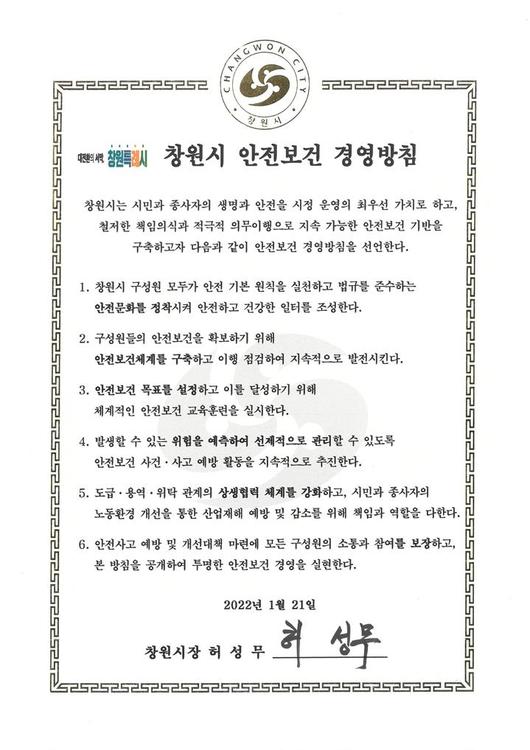 CHANGWON CITY
창원시
대전환의 서막, 창원특례시
창원시 안전보건 경영방침
창원시는 시민과 종사자의 생명과 안전을 시정 운영의 최우선 가치로 하고,
철저한 책임의식과 적극적 의무이행으로 지속 가능한 안전보건 기반을
구축하고자 다음과 같이 안전보건 경영방침을 선언한다.
1. 창원시 구성원 모두가 안전 기본 원칙을 실천하고 법규를 준수하는
안전문화를 정착시켜 안전하고 건강한 일터를 조성한다.
2. 구성원들의 안전보건을 확보하기 위해
안전보건체계를 구축하고 이행 점검하여 지속적으로 발전시킨다.
3. 안전보건 목표를 설정하고 이를 달성하기 위해
체계적인 안전보건 교육훈련을 실시한다.
4. 발생할 수 있는 위험을 예측하여 선제적으로 관리할 수 있도록
안전보건 사건·사고 예방 활동을 지속적으로 추진한다.
5. 도급·용역·위탁 관계의 상생협력 체계를 강화하고, 시민과 종사자의
노동환경 개선을 통한 산업재해 예방 및 감소를 위해 책임과 역할을 다한다.
6. 안전사고 예방 및 개선대책 마련에 모든 구성원의 소통과 참여를 보장하고,
본 방침을 공개하여 투명한 안전보건 경영을 실현한다.
2022년 1월 21일
창원시장 허성무 허 성무